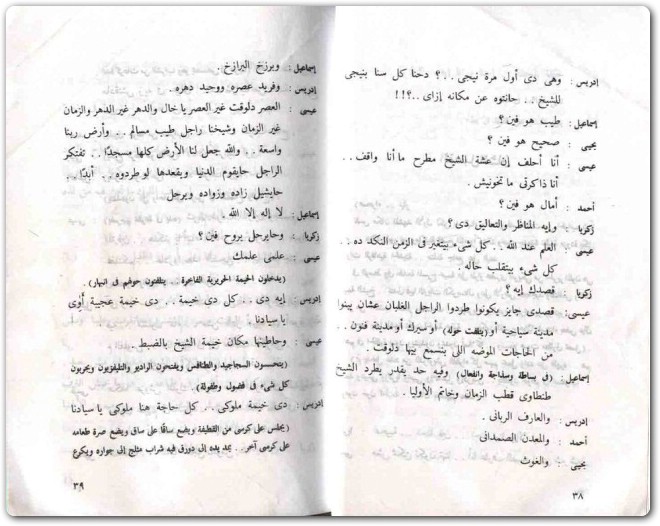 إدريس : وهى دى أول مرة نيجى . . ؟ دحنا كل سنا بنيجى
للشيخ . . حانتوه عن مكانه إزاى . . ؟!!
إسماعيل : طيب هو فين ؟
يحيى : صحيح هو فين ؟
عيسى : أنا أحلف إن عشة الشيخ مطرح ما أنا واقف . .
أنا ذاكرتى ما تخونيش .
أحمد : أمال هو فين ؟
زكريا : وإيه المناظر والتعاليق دى ؟
عيسى : العلم عند الله . . كل شىء بيتغير فى الزمن النكد ده . .
كل شىء بيتقلب حاله .
زكريا : قصدك إيه ؟
عيسى : قصدى جايز يكونوا طردوا الراجل الغلبان عشان يبنوا
مدينة سياحية أو (يتلفت حوله) أو سيرك أو مدينة فنون . .
من الحاجات الموضه اللى بنسمع بيها دلوقت
إسماعيل : (فى بساطة وسذاجة وانفعال) وفيه حد يقدر يطرد الشيخ
طنطاوى قطب الزمان وخاتم الأوليا .
إدريس : والعارف الربانى .
أحمد : والمعدن الصمدانى
يحيى : والغوث
٣٨
إسماعيل : وبرزخ البرازخ .
إدريس : وفريد عصره ووحيد دهره .
عيسى : العصر دلوقت غير العصر يا خال والدهر غير الدهر والزمان
غير الزمان وشيخنا راجل طيب مسالم . . وأرض ربنا
واسعة . . والله جعل لنا الأرض كلها مسجدًا . . تفتكر
الراجل حايقوم الدنيا ويقعدها لو طردوه . . أبدًا . .
حايشيل زاده وزواده ويرحل
إسماعيل : لا إله إلا الله .
زكريا : وحايرحل يروح فين ؟
عيسى : علمى علمك
(يدخلون الخيمة الحريرية الفاخرة . . يتلفتون حولهم فى انبهار)
إدريس : إيه دى . . كل دى خيمة . . دى خيمة عجيبة أوى
يا سيادنا
عيسى : وحاطينها مكان خيمة الشيخ بالضبط .
(يتحسسون السجاجيد والطنافس ويفتحون الراديو والتليفزيون ويجربون
كل شىء فى فضول وطفولة)
إدريس : دى خيمة ملوكى . . كل حاجة هنا ملوكى يا سيادنا
(يجلس على كرسى من القطيفة ويضع ساقًا على ساق ويضع صرة طعامه
على كرسى آخر . . يمد يده إلى دورق فيه شراب مثلج إلى جواره ويكرع
٣٩